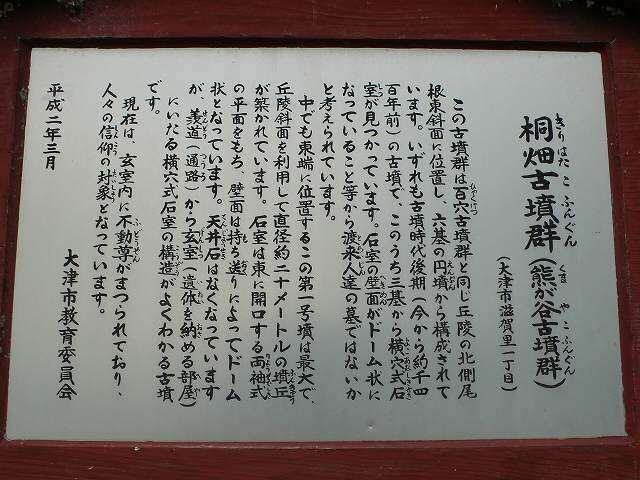 桐畑古墳群(熊が谷古墳群)
きりはたこふんぐん くまがやこふんぐん
(大津市滋賀里一丁目)
この古墳群は百穴古墳群と同じ丘陵の北側尾
根東斜面に位置し、六基の円墳から構成されて
います。いずれも古墳時代後期(今から約千四
百年前)の古墳で、このうち三基から横穴式石
室が見つかっています。石室の壁面がドーム状に
なっていること等から渡来人達の墓ではないか
と考えられています。
中でも東端に位置するこの第一号墳は最大で、
丘陵斜面を利用して直径約二十メートルの墳丘
が築かれています。石室は東に開口する両袖式
の平面をもち、壁面は持ち送りによってドーム
状となっています。天井石はなくなっています
が、羨道(通路)から玄室(遺体を納める部屋)
にいたる横穴式石室の構造がよくわかる古墳
です。
現在は、玄室内に不動尊がまつられており、
人々の信仰の対象となっています。
平成二年三月
大津市教育委員会